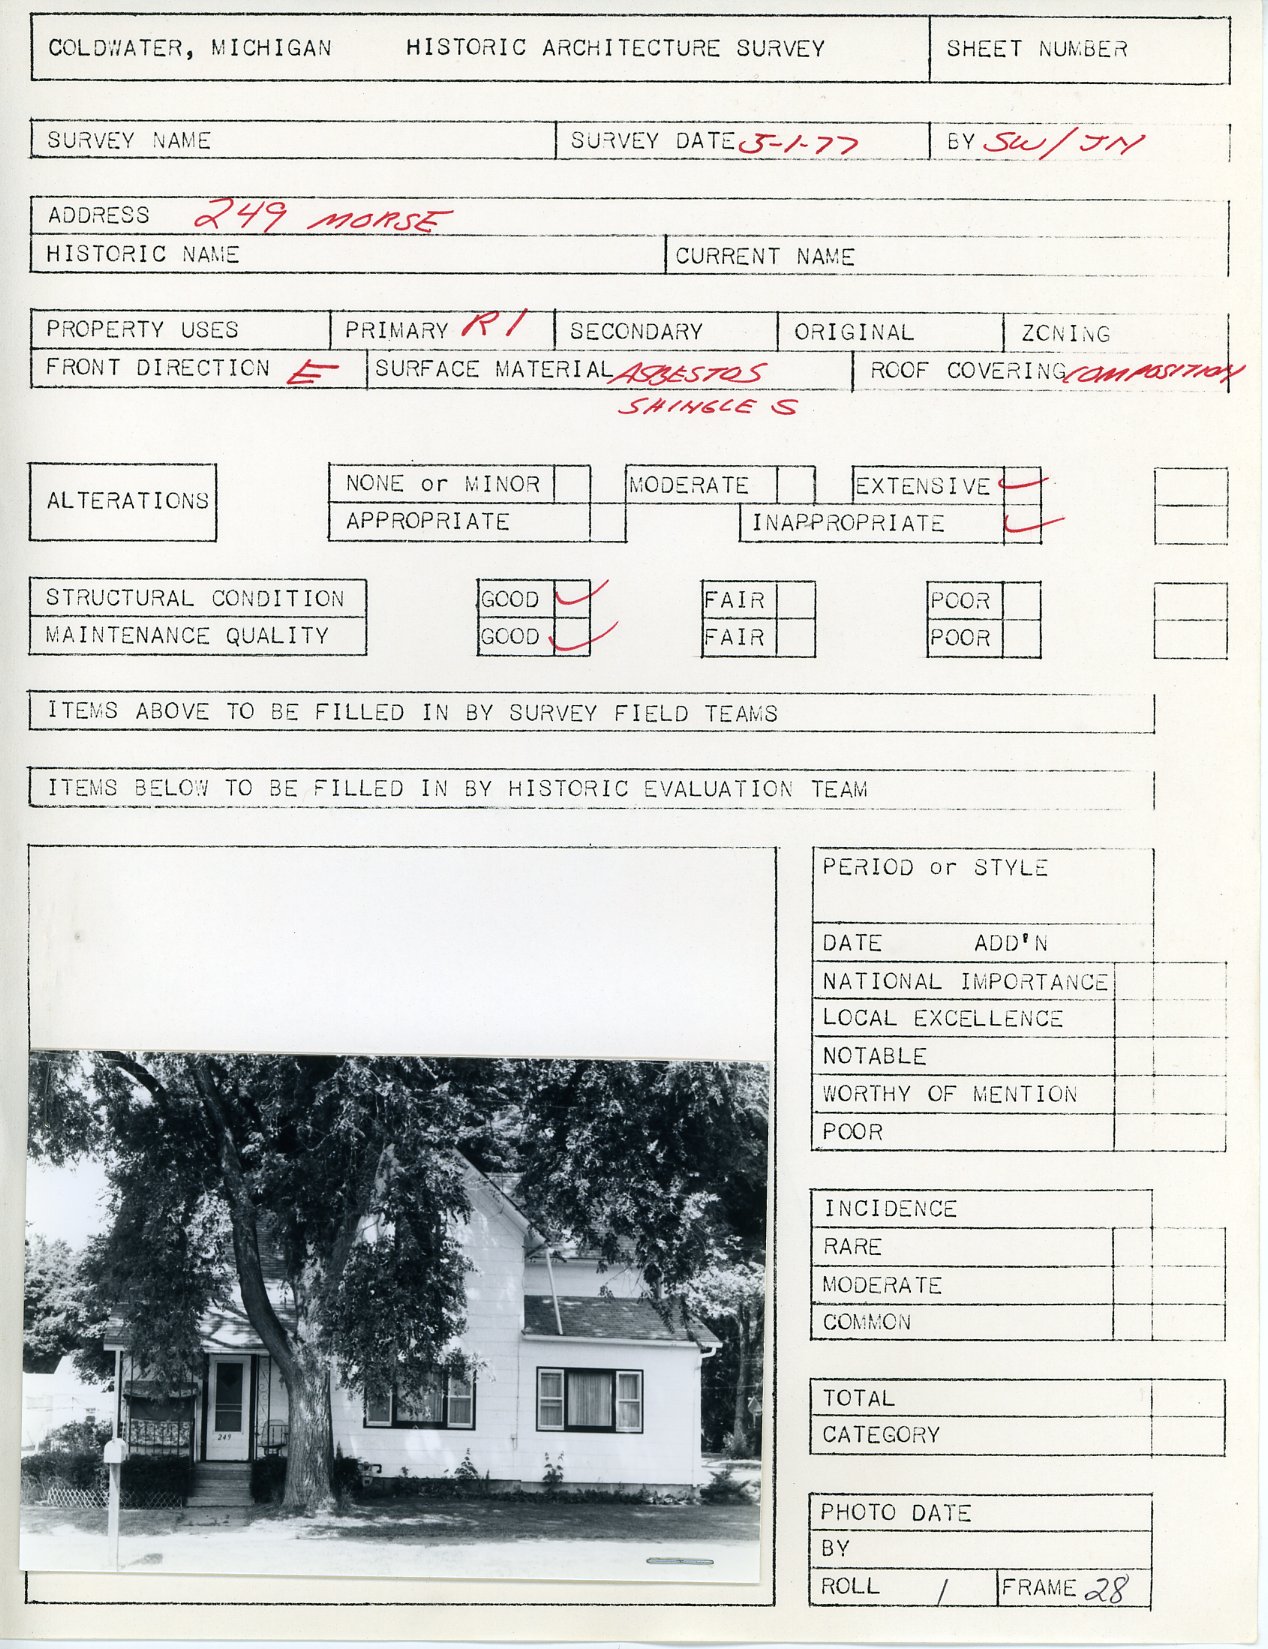 COLDWATER, MICHIGAN HISTORIC ARCHITECTURE SURVEY SHEET NUMBER
SURVEY NAME SURVEY DATE 5-1-77 BY SW/JN
ADDRESS 249 MORSE
HISTORIC NAME CURRENT NAME
PROPERTY USES PRIMARY R1 SECONDARY ORIGINAL ZONING
FRONT DIRECTION E SURFACE MATERIAL ASBESTOS ROOF COVERING COMPOSITION
SHINGLES
ALTERATIONS NONE or MINOR MODERATE EXTENSIVE ✓
APPROPRIATE INAPPROPRIATE ✓
STRUCTURAL CONDITION GOOD ✓ FAIR POOR
MAINTENANCE QUALITY GOOD ✓ FAIR POOR
ITEMS ABOVE TO BE FILLED IN BY SURVEY FIELD TEAMS
ITEMS BELOW TO BE FILLED IN BY HISTORIC EVALUATION TEAM
PERIOD or STYLE
DATE ADD'N
NATIONAL IMPORTANCE
LOCAL EXCELLENCE
NOTABLE
WORTHY OF MENTION
POOR
INCIDENCE
RARE
MODERATE
COMMON
TOTAL
CATEGORY
PHOTO DATE
BY
ROLL 1 FRAME 28
249